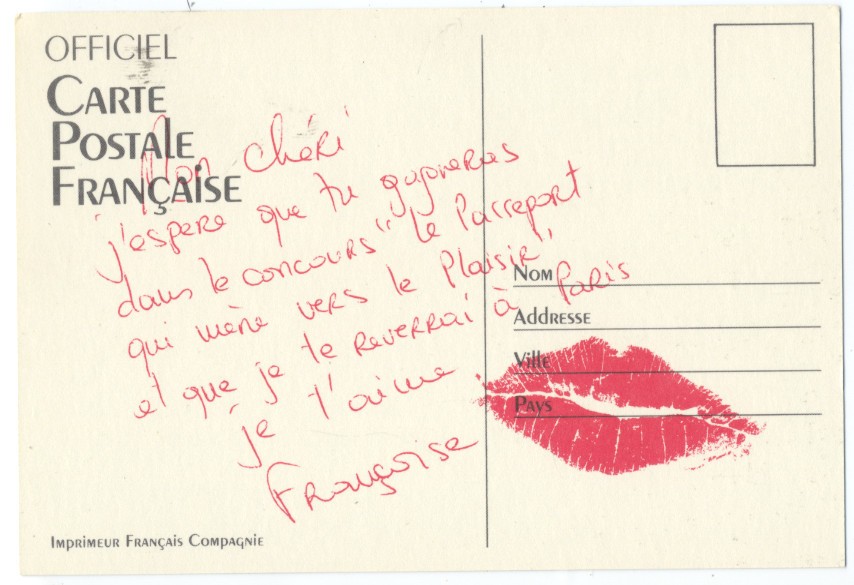 OFFICIEL
CARTE
POSTALE
FRANÇAISE
Mon chéri
j'espere que tu gagneras
dans le concours "Le Passeport
qui mène vers le Plaisir"
et que je te reverrai à Paris
je t'aime.
Françoise
NOM
ADDRESSE
VILLE
PAYS
IMPRIMEUR FRANÇAIS COMPAGNIE